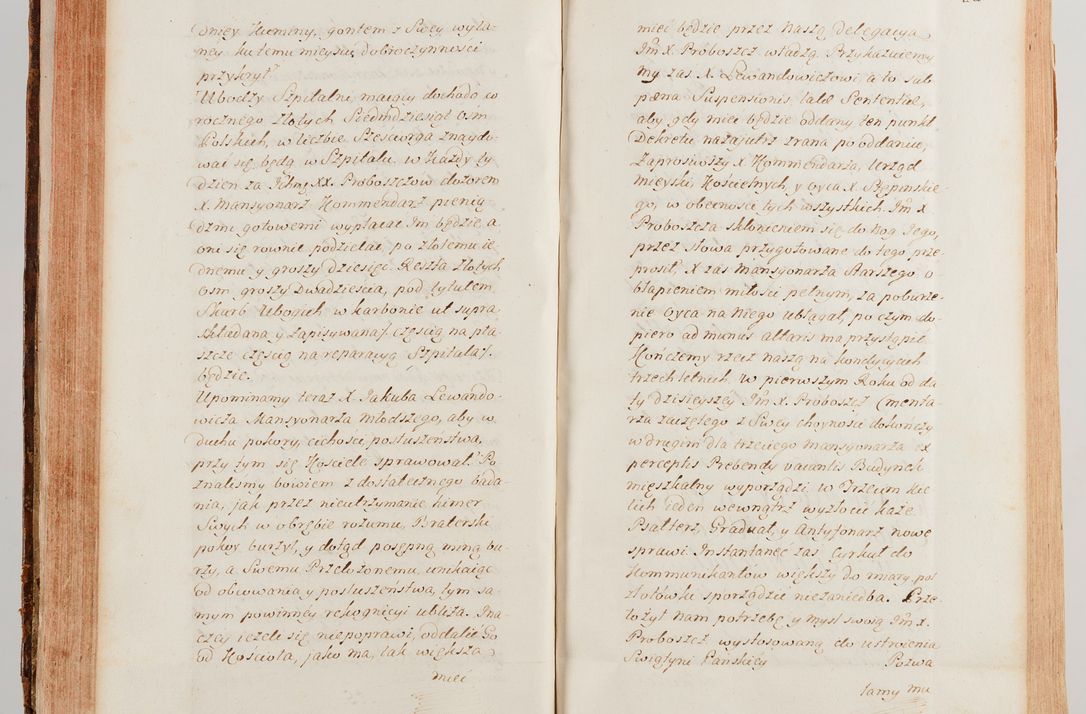 dniey Kuminy, gontem z Swey wyla-
ney ku temu mieyscu dobroczynności
przykrył.
Ubodzy Szpitalni maiący dochodo co
rocznego Złotych Siedmdziesiąt Osm
Polskich, w liczbie Sześciorga znaydo
wać się będą w Szpitalu, w Każdy ty
dzien za Jchmć XX. Proboszczow dozorem
X. Mansyonarz Kommendarz pienią
dzmi gotowemi wypłacać Im będzie, a
oni się rowno podzielać, po złotemu ie
dnemu y groszy dziesięć. Reszta Złotych
Osm groszy Dwadzieścia, pod tytułem
Skarb Ubogich w karbonie ut supra
składana y zapisywana/. częścią na pła
szcze częścią na reparacyą Szpitala/.
będzie.
Upominamy teraz X. Jakuba Lewando-
wicza Mansyonarza Młodszego, aby w
duchu pokory, cichości posłuszeństwa,
przy tym się Kościele sprawował. Po
znaliśmy bowiem z dostatecznego bada-
nia, jak przez nieutrzymanie himer
Swych w obrębie rozumu, Braterski
pokoy burzył, y dotąd posępną miną bu-
rzy, a Swemu Przełożonemu, unikaiąc
od obcowania y posłuszeństwa, tym sa-
mym powinney rekognicyi ubliża. Ina-
czey ieżeli się niepoprawi, oddalić Go
od Kościoła, jako ma, tak większą
mieć
mieć będzie przez Naszą delegacya
Jm X. Proboszcz władzą. Przykazuiemy
my zas X. Lewandowiczowi, a to sub
pæna Suspensionis, latæ Sententiæ,
aby gdy mieć będzie oddany ten punkt
Dekretu nazajutrz zrana po oddaniu,
Zaprosiwszy X. Kommendarza, Urząd
mieyski, Kościelnych, y Oyca X. Stępinskie-
go, w obecności tych wszystkich Jm X.
Proboszcza skłonieniem się do nog Jego,
przez słowa przygotowane do tego, prze
prosił, X zas Mansyonarza Starszego o-
błapieniem miłości pełnym, za poburze-
nie Oyca na Niego ubłagał, po czym do-
piero ad munus altaris ma przystąpić.
Kończemy rzecz naszą na kondycyach
trzech letnich. W pierwszym Roku od da
ty dzisieyszey Jm X. Proboszcz Cmenta-
rza zaczętego z Swey choyności dokończy
w drugim dla trzeciego Mansyonarza ex
perceptis Prebendy vacantis Budynek
mięszkalny wyporządzi w Trzecim Kie
lich ieden wewnątrz wyzłocić każe
Psałterz, Graduał, y Antyfonarz nowe
sprawi Instantanee zas Cyrkuł do
Kommunikantow większy do miary poł
złotowki sporządzić niezaniedba. Prze-
łożył Nam potrzebę y myśl swoią Jm X.
Proboszcz wystosowaną do ustroienia
Swiątyni Pańskiey Pozwa
lamy Mu